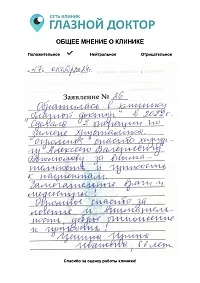 СЕТЬ КЛИНИК
ГЛАЗНОЙ ДОКТОР
ОБЩЕЕ МНЕНИЕ О КЛИНИКЕ
Положительное Нейтральное Отрицательное
17 октября
Заявление № 26
Обратилась в клинику
"Глазной доктор" в
Сделала 2 операции по
замене хрусталика.
Огромное спасибо хирур-
гу Алексею Валерьевичу
за внима-
тельность и чуткость
к пациентам.
Замечательные врачи и
медсестры!
Огромное спасибо за
лечение и вниматель-
ность, доброе отношение
и чуткость!
Ирина
Ивановна 66 лет
Спасибо за оценку работы клиники!